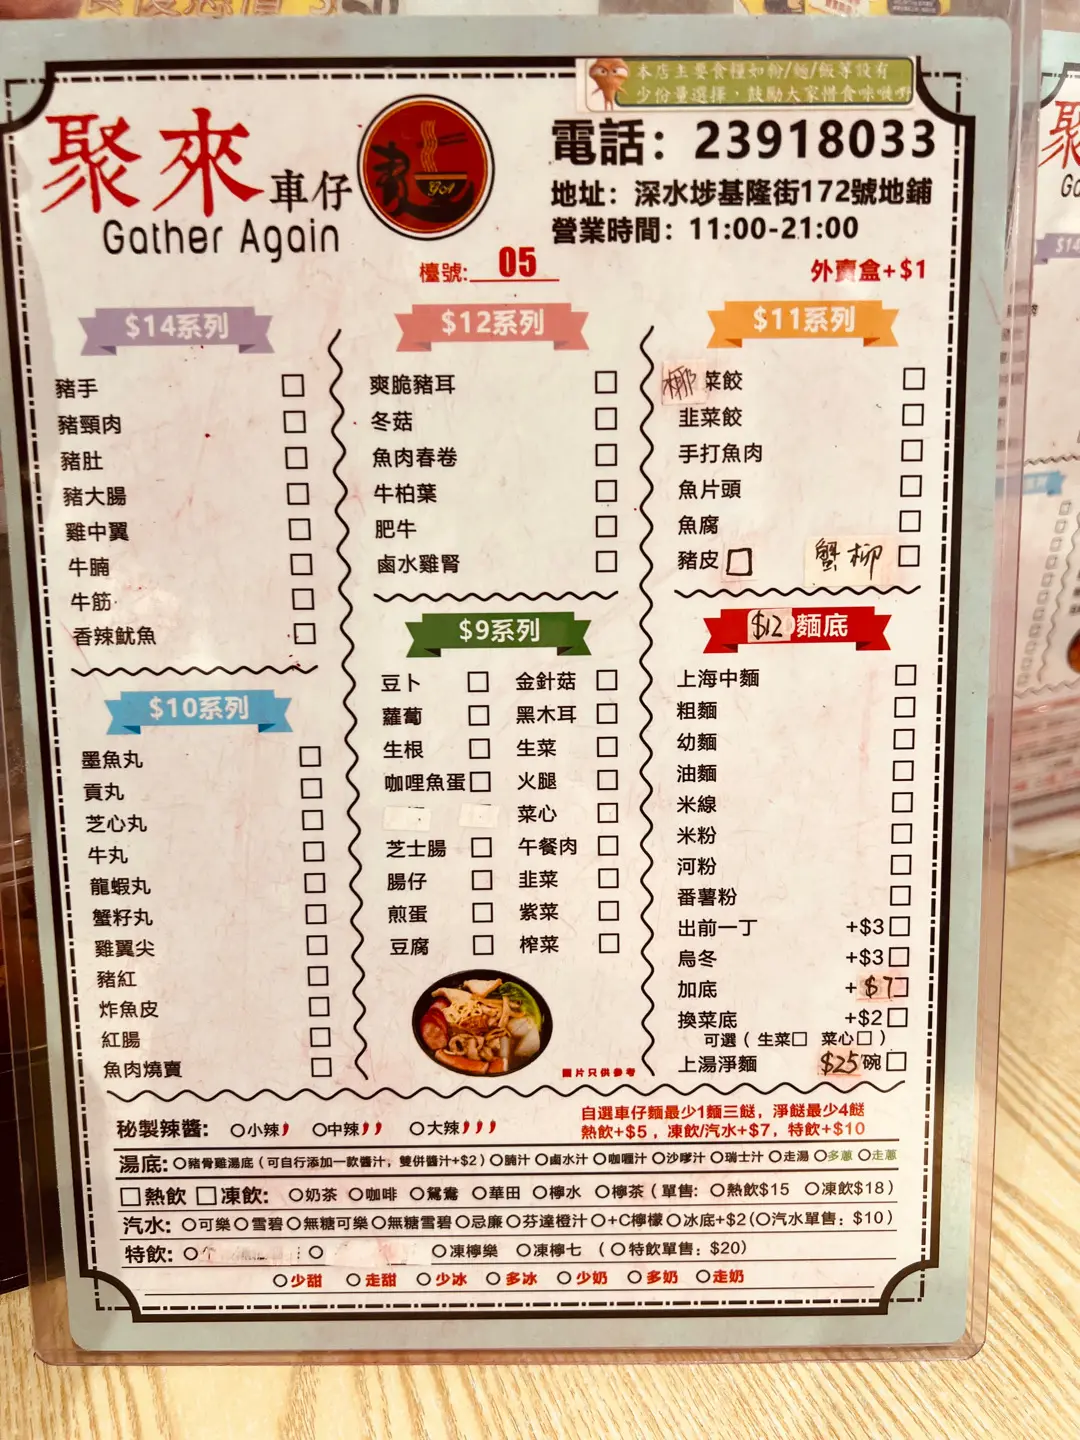 本店主要食糧如粉/麵/飯等設有
少份量選擇，鼓勵大家惜食咪嘥嘢
聚來車仔
Gather Again
GA
電話：23918033
地址：深水埗基隆街172號地鋪
營業時間：11:00-21:00
檯號: 05
外賣盒+$1
$14系列
豬手
豬頸肉
豬肚
豬大腸
雞中翼
牛腩
牛筋
香辣魷魚
$10系列
墨魚丸
貢丸
芝心丸
牛丸
龍蝦丸
蟹籽丸
雞翼尖
豬紅
炸魚皮
紅腸
魚肉燒賣
$12系列
爽脆豬耳
冬菇
魚肉春卷
牛柏葉
肥牛
鹵水雞腎
$9系列
豆卜 金針菇
蘿蔔 黑木耳
生根 生菜
咖哩魚蛋 火腿
菜心
芝士腸 午餐肉
腸仔 韭菜
煎蛋 紫菜
豆腐 榨菜
圖片只供參考
$11系列
椰菜餃
韭菜餃
手打魚肉
魚片頭
魚腐
豬皮 蟹柳
$12麵底
上海中麵
粗麵
幼麵
油麵
米線
米粉
河粉
番薯粉
出前一丁 +$3
烏冬 +$3
加底 +$7
換菜底 +$2
可選（生菜 菜心）
上湯淨麵 $25碗
秘製辣醬： 小辣 中辣 大辣
自選車仔麵最少1麵三餸，淨餸最少4餸
熱飲+$5，凍飲/汽水+$7，特飲+$10
湯底：豬骨雞湯底（可自行添加一款醬汁，雙併醬汁+$2）腩汁 鹵水汁 咖喱汁 沙嗲汁 瑞士汁 走湯 多蔥 走蔥
熱飲 凍飲： 奶茶 咖啡 鴛鴦 華田 檸水 檸茶（單售： 熱飲$15 凍飲$18）
汽水：可樂 雪碧 無糖可樂 無糖雪碧 忌廉 芬達橙汁 +C檸檬 冰底+$2（汽水單售：$10）
特飲： 凍檸樂 凍檸七 （特飲單售：$20）
少甜 走甜 少冰 多冰 少奶 多奶 走奶